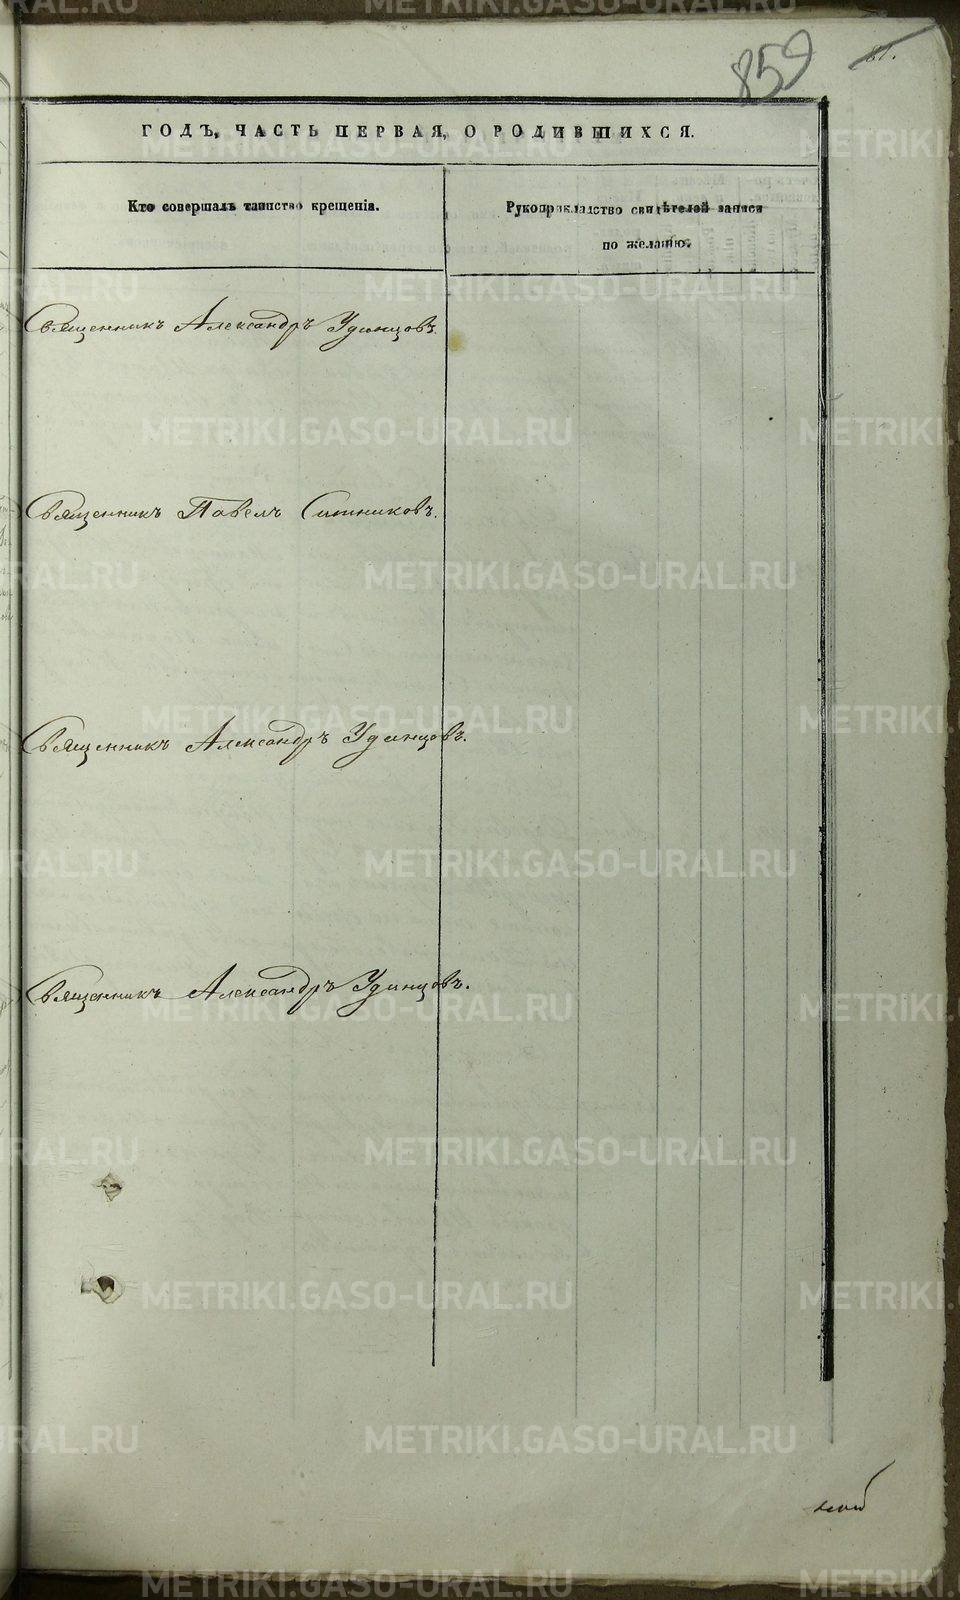 859
81.
ГОДЪ, ЧАСТЬ ПЕРВАЯ, О РОДИВШИХСЯ.
Кто совершалъ таинство крещенія.
Рукоприкладство свидѣтелей записи
по желанію.
Священникъ Александръ Удинцовъ.
Священникъ Павелъ Ситниковъ.
Священникъ Александръ Удинцовъ.
Священникъ Александръ Удинцовъ.
METRIKI.GASO-URAL.RU